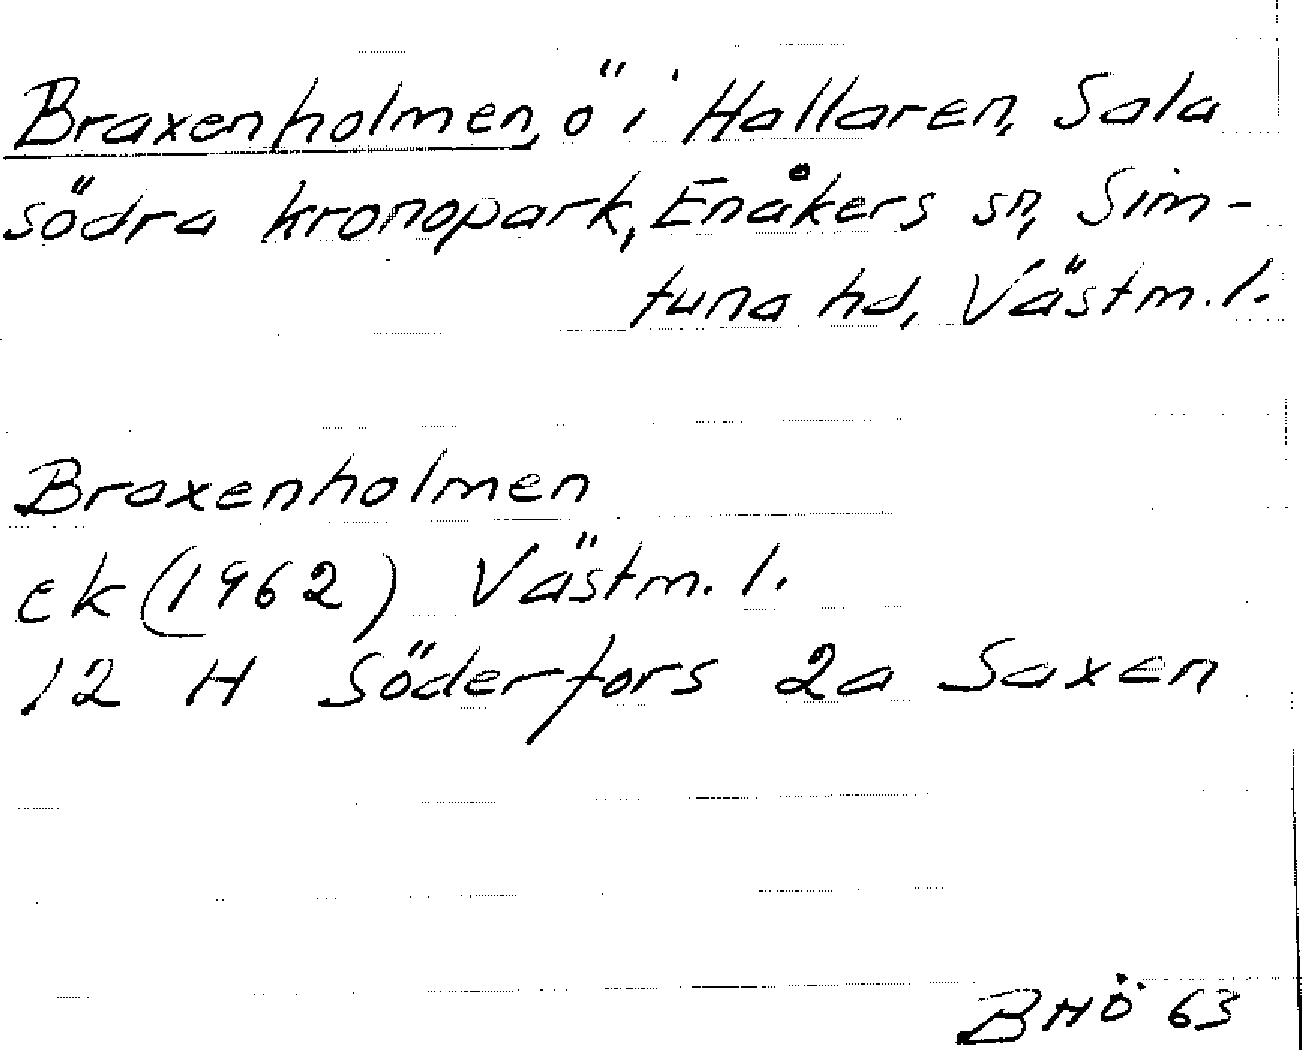 Braxenholmen, ö i Hallaren, Sala
södra kronopark, Enåkers sn, Sim-
tuna hd, Västm. l.
Braxenholmen
ek (1962) Västm. l.
12 H Söderfors 2a Saxen
BHÖ 63